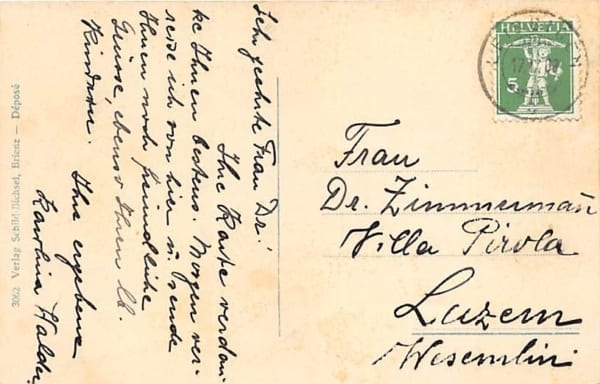 Sehr geehrte Frau Dr!
Ihre Karte verdan-
ke Ihnen bestens. Morgen ver-
reise ich von hier u. sende
Ihnen noch freundliche
Grüsse, ebenso Ihren lb.
Kindern.
Ihre ergebene
Karolina Walder.
3062 Verlag Schild-Bichsel, Brienz — Déposé
HELVETIA
5
Frau
Dr. Zimmermann
Villa Pirola
Luzern
Wesemlin